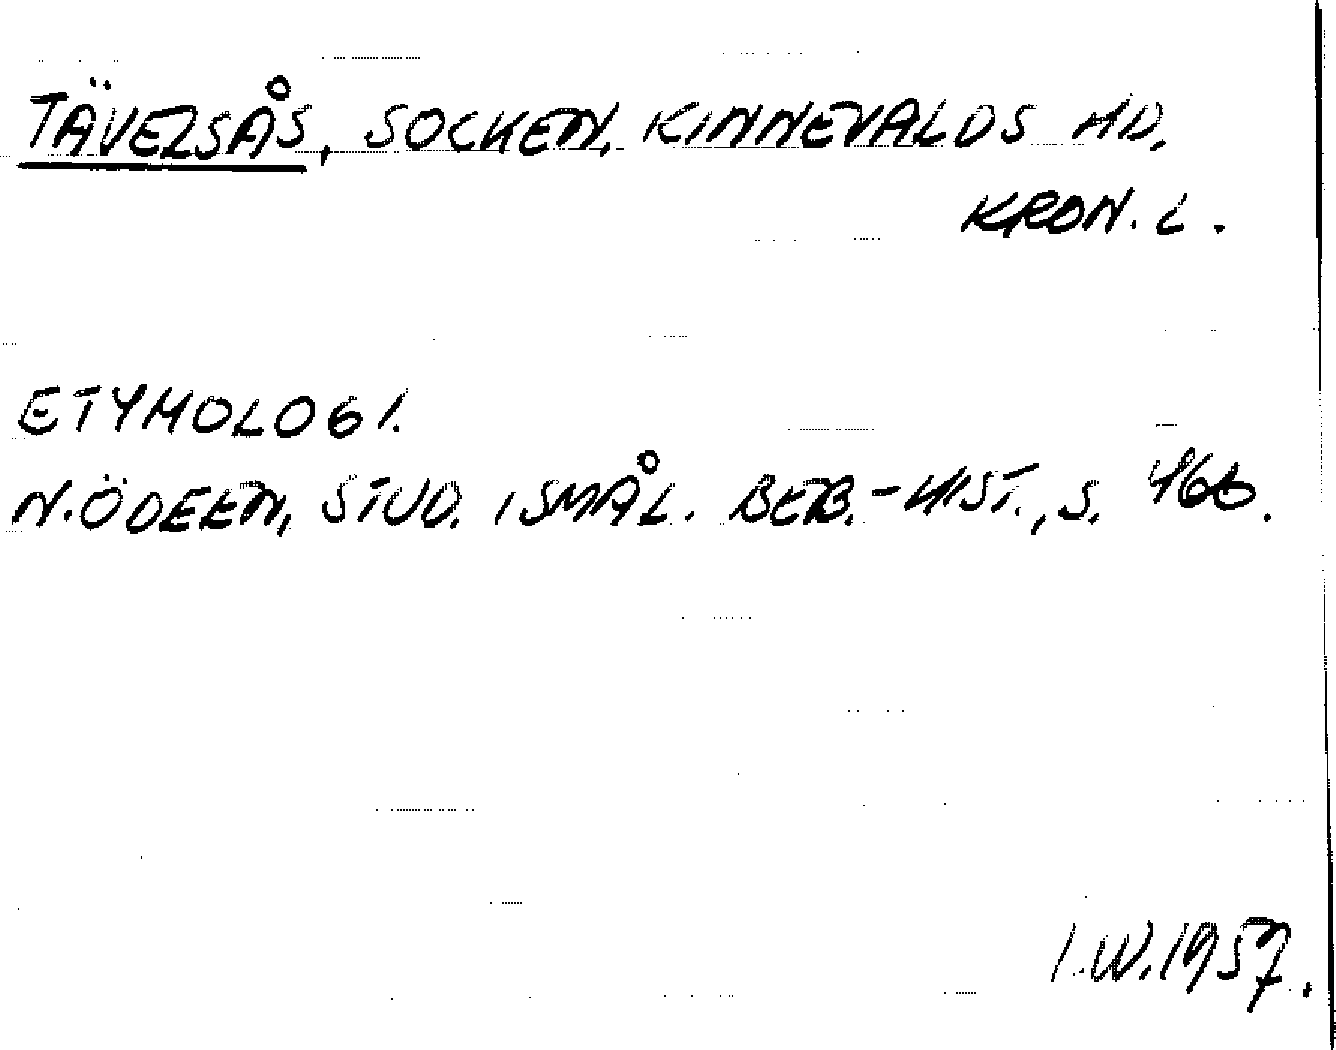 TÄVELSÅS, SOCKEN, KINNEVALDS HD,
KRON. L.
ETYMOLOGI.
N. ÖDEEN, STUD. I SMÅL. BEB.-HIST., S. 466.
I.W. 1957.